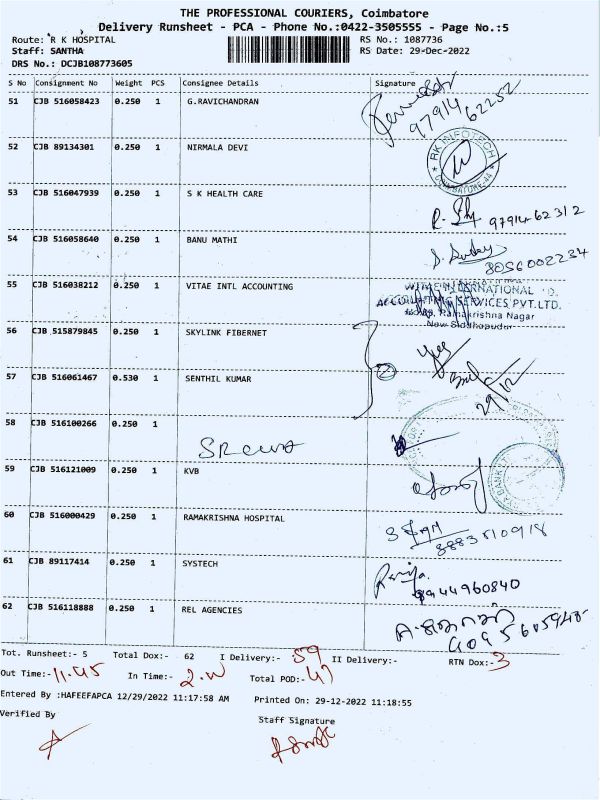 THE PROFESSIONAL COURIERS, Coimbatore
Delivery Runsheet - PCA - Phone No.:0422-3505555 - Page No.:5
Route: R K HOSPITAL RS No.: 1087736
Staff: SANTHA RS Date: 29-Dec-2022
DRS No.: DCJB108773605
S No Consignment No Weight PCS Consignee Details Signature
51 CJB 516058423 0.250 1 G.RAVICHANDRAN
97914 62252
52 CJB 89134301 0.250 1 NIRMALA DEVI
RK INFOTECH COIMBATORE-44
53 CJB 516047939 0.250 1 S K HEALTH CARE
97914-62312
54 CJB 516058640 0.250 1 BANU MATHI
8056002234
55 CJB 516038212 0.250 1 VITAE INTL ACCOUNTING
VITAE INTERNATIONAL
ACCOUNTING SERVICES PVT.LTD.
Ramakrishna Nagar
New Siddhapudur
56 CJB 515879845 0.250 1 SKYLINK FIBERNET
57 CJB 516061467 0.530 1 SENTHIL KUMAR
2
29/12
58 CJB 516100266 0.250 1
59 CJB 516121009 0.250 1 KVB
60 CJB 516000429 0.250 1 RAMAKRISHNA HOSPITAL
8883510918
61 CJB 89117414 0.250 1 SYSTECH
9944960840
62 CJB 516118888 0.250 1 REL AGENCIES
Tot. Runsheet:- 5 Total Dox:- 62 I Delivery:- 59 II Delivery:- RTN Dox:- 3
Out Time:- 11.45 In Time:- Total POD:- 47
Entered By :HAFEEFAPCA 12/29/2022 11:17:58 AM Printed On: 29-12-2022 11:18:55
Verified By Staff Signature